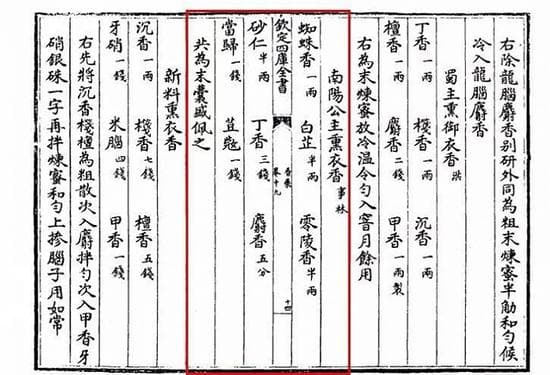 右除龍腦麝香別研外同為粗末煉蜜半觔和勻候
冷入龍腦麝香
蜀主熏御衣香 洪
丁香一兩 棧香一兩 沉香一兩
檀香一兩 麝香二錢 甲香一兩製
右為末煉蜜放冷温令勻入窨月餘用
南陽公主熏衣香 事林
蜘蛛香一兩 白芷半兩 零陵香半兩
欽定四庫全書 香乘 卷十九 十四
砂仁半兩 丁香三錢 麝香五分
當歸一錢 荳蔲一錢
共為末囊盛佩之
新料熏衣香
沉香一兩 棧香七錢 檀香五錢
牙硝一錢 米腦四錢 甲香一錢
右先將沉香棧檀為粗散次入麝拌勻次入甲香牙
硝銀硃一字再拌煉蜜和勻上摻腦子用如常